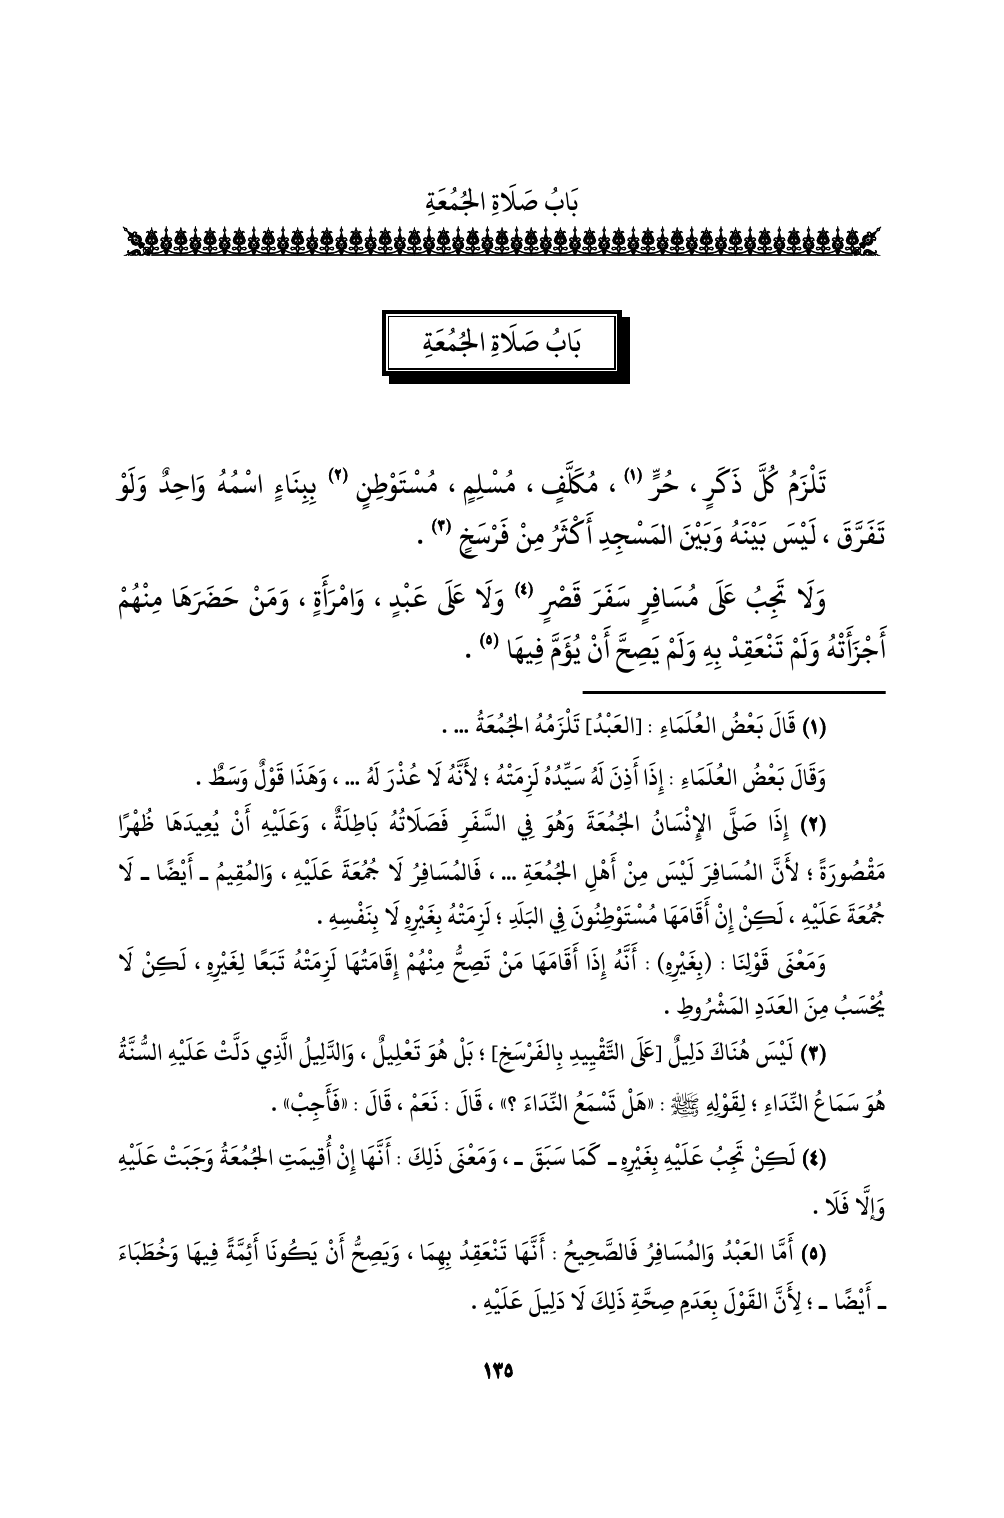 بَابُ صَلَاةِ الجُمُعَةِ
بَابُ صَلَاةِ الجُمُعَةِ
تَلْزَمُ كُلَّ ذَكَرٍ ، حُرٍّ (١) ، مُكَلَّفٍ ، مُسْلِمٍ ، مُسْتَوْطِنٍ (٢) بِبِنَاءٍ اسْمُهُ وَاحِدٌ وَلَوْ
تَفَرَّقَ ، لَيْسَ بَيْنَهُ وَبَيْنَ المَسْجِدِ أَكْثَرُ مِنْ فَرْسَخٍ (٣) .
وَلَا تَجِبُ عَلَى مُسَافِرٍ سَفَرَ قَصْرٍ (٤) وَلَا عَلَى عَبْدٍ ، وَامْرَأَةٍ ، وَمَنْ حَضَرَهَا مِنْهُمْ
أَجْزَأَتْهُ وَلَمْ تَنْعَقِدْ بِهِ وَلَمْ يَصِحَّ أَنْ يُؤَمَّ فِيهَا (٥) .
(١) قَالَ بَعْضُ العُلَمَاءِ : [العَبْدُ] تَلْزَمُهُ الجُمُعَةُ ... .
وَقَالَ بَعْضُ العُلَمَاءِ : إِذَا أَذِنَ لَهُ سَيِّدُهُ لَزِمَتْهُ ؛ لأَنَّهُ لَا عُذْرَ لَهُ ... ، وَهَذَا قَوْلٌ وَسَطٌ .
(٢) إِذَا صَلَّى الإِنْسَانُ الجُمُعَةَ وَهُوَ فِي السَّفَرِ فَصَلَاتُهُ بَاطِلَةٌ ، وَعَلَيْهِ أَنْ يُعِيدَهَا ظُهْرًا
مَقْصُورَةً ؛ لأَنَّ المُسَافِرَ لَيْسَ مِنْ أَهْلِ الجُمُعَةِ ... ، فَالمُسَافِرُ لَا جُمُعَةَ عَلَيْهِ ، وَالمُقِيمُ ـ أَيْضًا ـ لَا
جُمُعَةَ عَلَيْهِ ، لَكِنْ إِنْ أَقَامَهَا مُسْتَوْطِنُونَ فِي البَلَدِ ؛ لَزِمَتْهُ بِغَيْرِهِ لَا بِنَفْسِهِ .
وَمَعْنَى قَوْلِنَا : (بِغَيْرِهِ) : أَنَّهُ إِذَا أَقَامَهَا مَنْ تَصِحُّ مِنْهُمْ إِقَامَتُهَا لَزِمَتْهُ تَبَعًا لِغَيْرِهِ ، لَكِنْ لَا
يُحْسَبُ مِنَ العَدَدِ المَشْرُوطِ .
(٣) لَيْسَ هُنَاكَ دَلِيلٌ [عَلَى التَّقْيِيدِ بِالفَرْسَخِ] ؛ بَلْ هُوَ تَعْلِيلٌ ، وَالدَّلِيلُ الَّذِي دَلَّتْ عَلَيْهِ السُّنَّةُ
هُوَ سَمَاعُ النِّدَاءِ ؛ لِقَوْلِهِ ﷺ : «هَلْ تَسْمَعُ النِّدَاءَ ؟» ، قَالَ : نَعَمْ ، قَالَ : «فَأَجِبْ» .
(٤) لَكِنْ تَجِبُ عَلَيْهِ بِغَيْرِهِ ـ كَمَا سَبَقَ ـ ، وَمَعْنَى ذَلِكَ : أَنَّهَا إِنْ أُقِيمَتِ الجُمُعَةُ وَجَبَتْ عَلَيْهِ
وَإِلَّا فَلَا .
(٥) أَمَّا العَبْدُ وَالمُسَافِرُ فَالصَّحِيحُ : أَنَّهَا تَنْعَقِدُ بِهِمَا ، وَيَصِحُّ أَنْ يَكُونَا أَئِمَّةً فِيهَا وَخُطَبَاءَ
ـ أَيْضًا ـ ؛ لِأَنَّ القَوْلَ بِعَدَمِ صِحَّةِ ذَلِكَ لَا دَلِيلَ عَلَيْهِ .
١٣٥